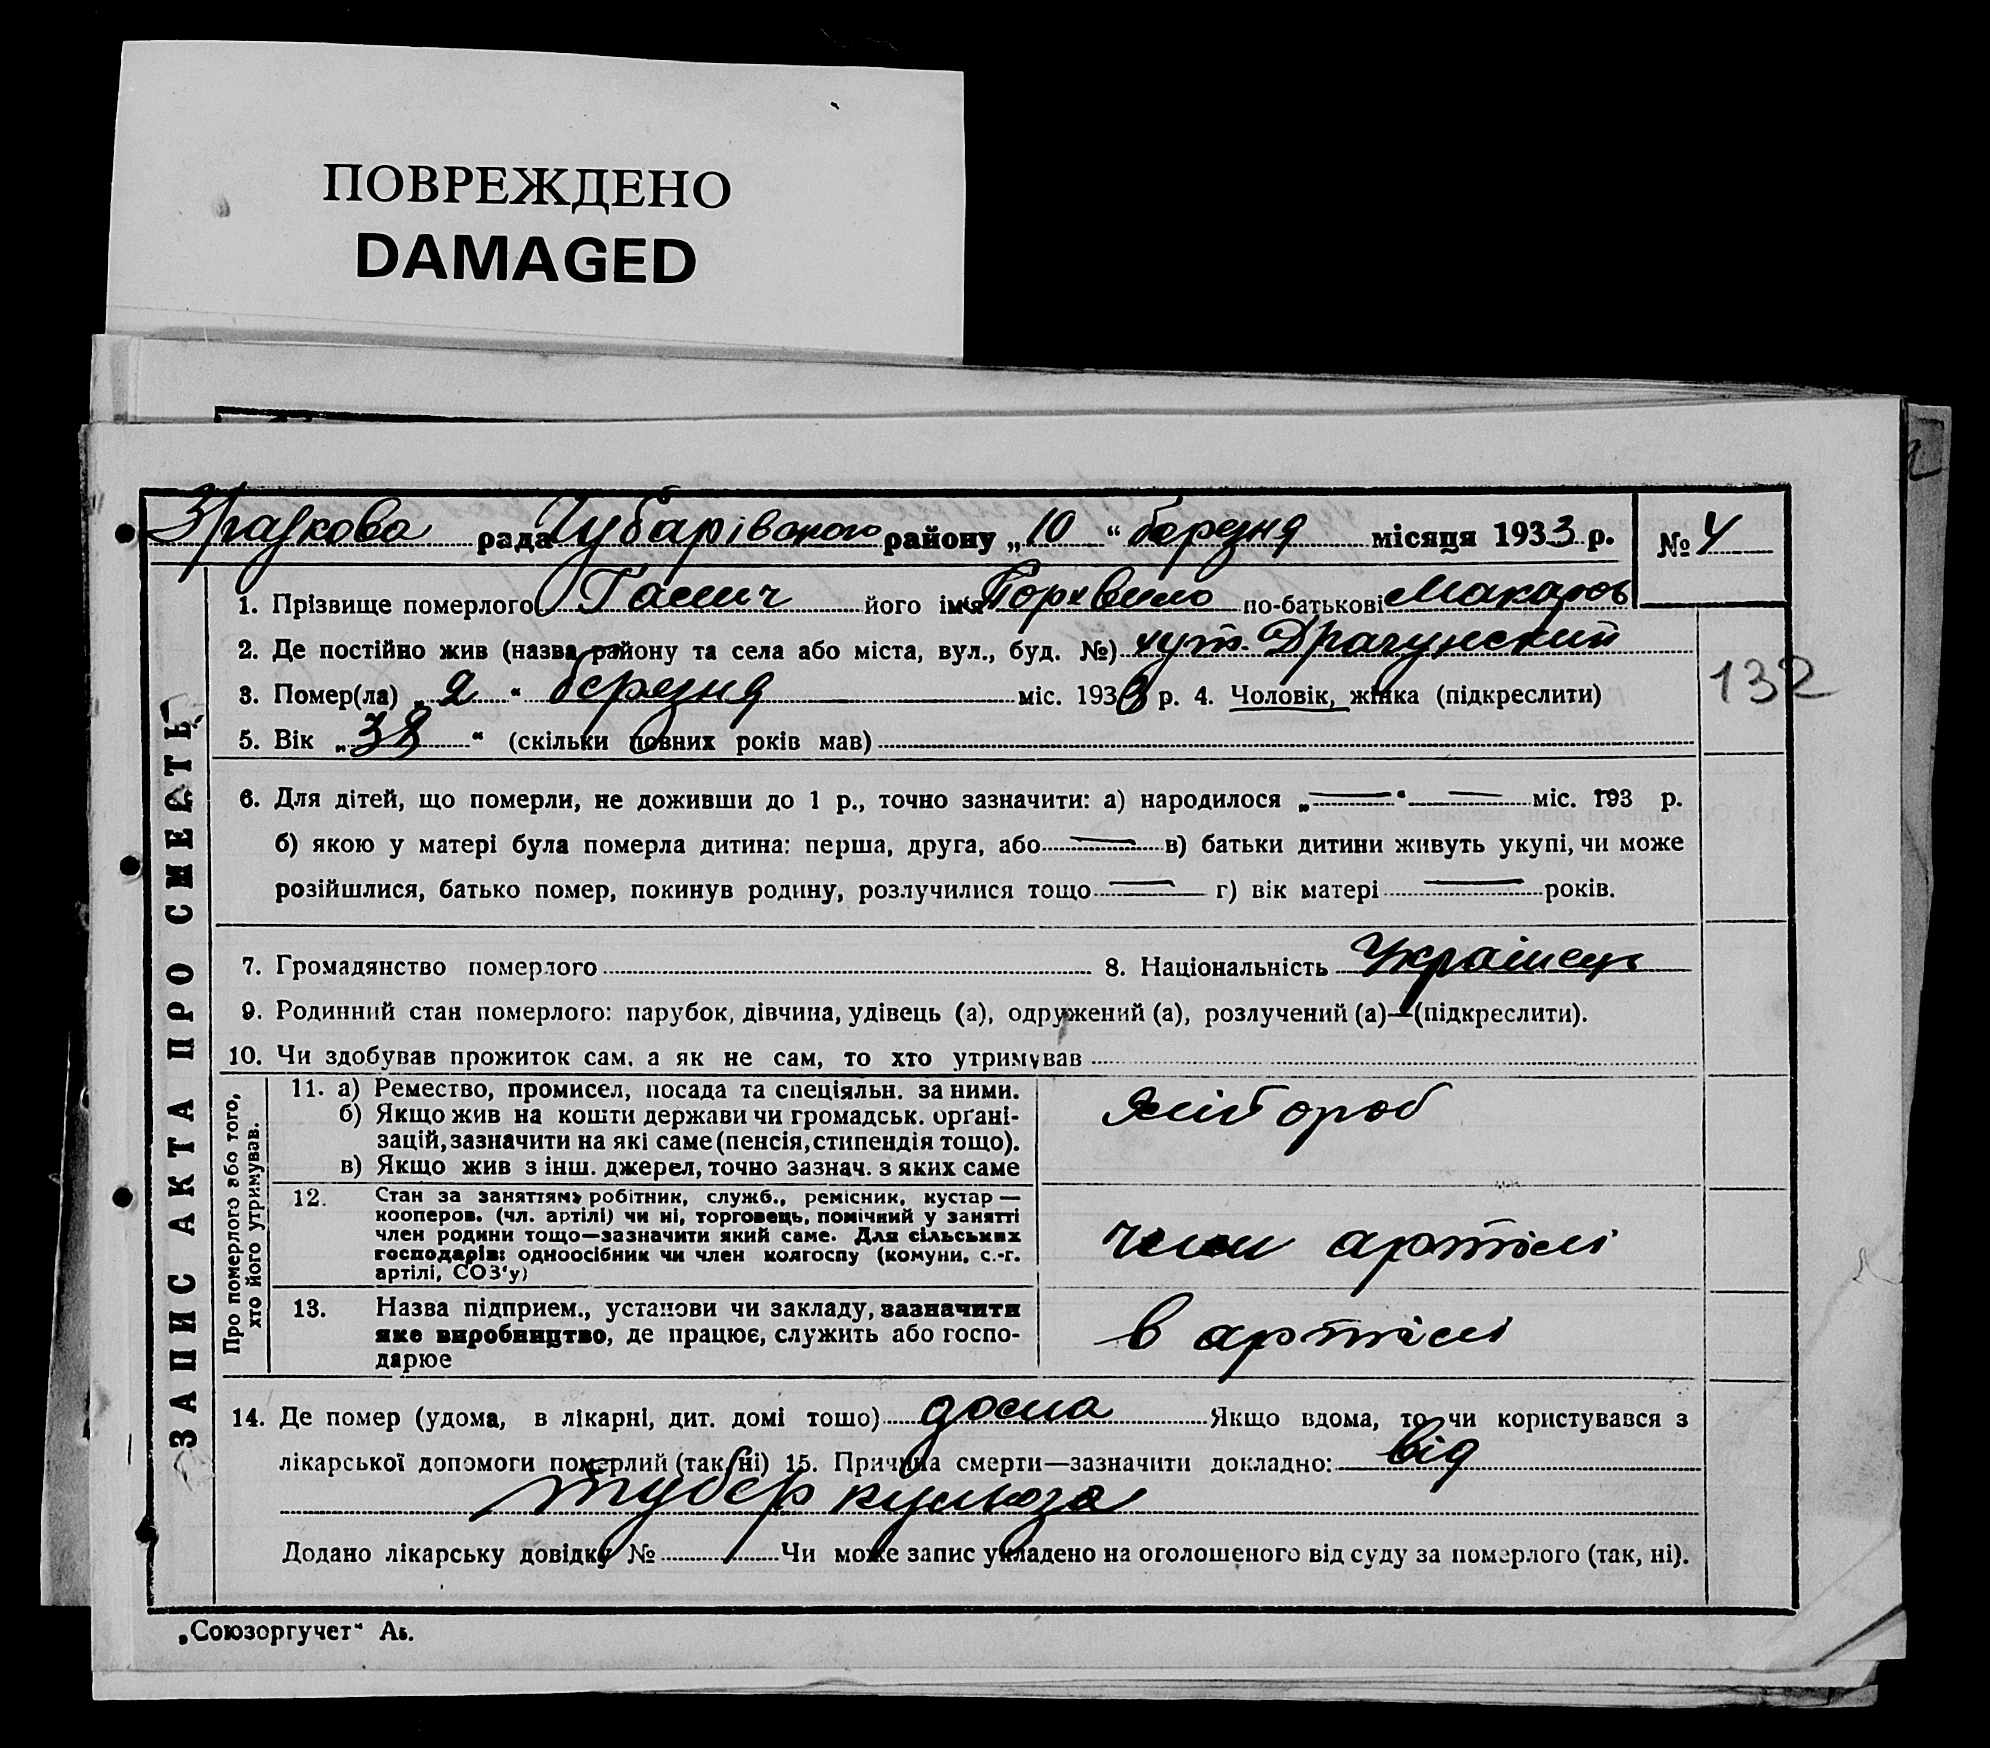 ПОВРЕЖДЕНО
DAMAGED
рада Чубарівського району „10“ березня місяця 1933 р. № 4
1. Прізвище померлого Галич його ім'я по-батькові Макаров
2. Де постійно жив (назва району та села або міста, вул., буд. №) хут. Драгунский
3. Помер(ла) „2“ березня міс. 1933 р. 4. Чоловік, жінка (підкреслити)
132
5. Вік „38“ (скільки повних років мав)
6. Для дітей, що померли, не доживши до 1 р., точно зазначити: а) народилося „—“ — міс. 193 р.
б) якою у матері була померла дитина: перша, друга, або — в) батьки дитини живуть укупі, чи може
розійшлися, батько помер, покинув родину, розлучилися тощо — г) вік матері — років.
7. Громадянство померлого 8. Національність Українець
9. Родинний стан померлого: парубок, дівчина, удівець (а), одружений (а), розлучений (а)—(підкреслити).
10. Чи здобував прожиток сам, а як не сам, то хто утримував
Про померлого або того,
хто його утримував.
11. а) Ремество, промисел, посада та спеціяльн. за ними.
б) Якщо жив на кошти держави чи громадськ. орґані-
зацій, зазначити на які саме (пенсія, стипендія тощо).
в) Якщо жив з інш. джерел, точно зазнач. з яких саме
хліббороб
12. Стан за заняттям: робітник, служб., ремісник, кустар —
кооперов. (чл. артілі) чи ні, торговець, помічний у занятті
член родини тощо—зазначити який саме. Для сільських
господарів: одноосібник чи член колгоспу (комуни, с.-г.
артілі, СОЗ'у)
член артілі
13. Назва підприєм., установи чи закладу, зазначити
яке виробництво, де працює, служить або госпо-
дарює
в артілі
14. Де помер (удома, в лікарні, дит. домі тощо) дома Якщо вдома, то чи користувався з
лікарської допомоги померлий (так, ні) 15. Причина смерти—зазначити докладно: від
туберкульоза
Додано лікарську довідку № Чи може запис укладено на оголошеного від суду за померлого (так, ні).
ЗАПИС АКТА ПРО СМЕРТЬ
„Союзоргучет“